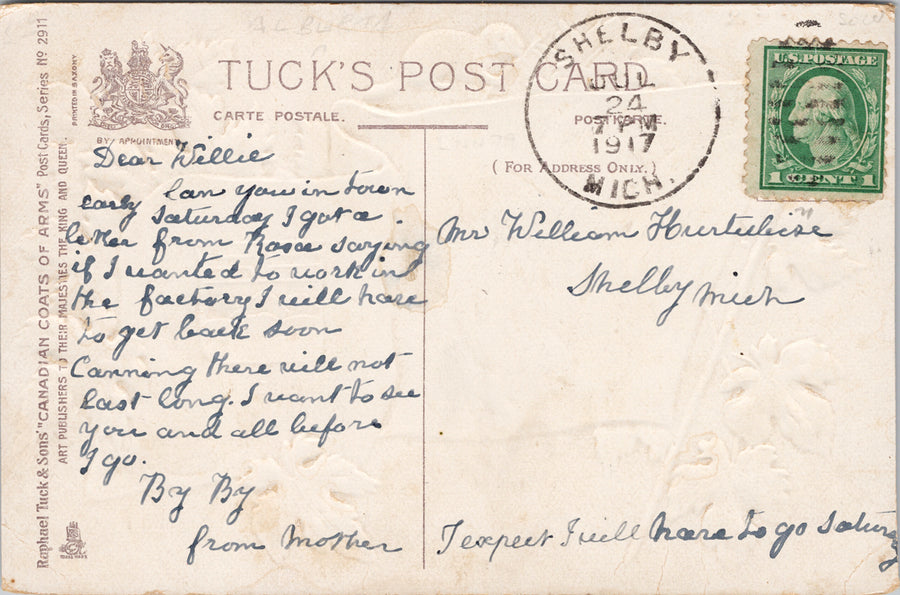 ALBERTA
Raphael Tuck & Sons' "CANADIAN COATS OF ARMS" Post Cards, Series No 2911
ART PUBLISHERS TO THEIR MAJESTIES THE KING AND QUEEN.
PRINTED IN SAXONY
BY APPOINTMENT
TUCK'S POST CARD
CARTE POSTALE.
POSTKARTE.
( FOR ADDRESS ONLY. )
SHELBY
JUL
24
7 PM
1917
MICH.
U.S. POSTAGE
1 CENT 1
Dear Willie
early Can you in town
Saturday I got a
letter from Rosa saying
if I wanted to work in
the factory I will have
to get back soon
Canning there will not
last long. I want to see
you and all before
I go.
By By
from Mother
Mr William Hurtubise
Shelby Mich
I expect I will have to go Saturay